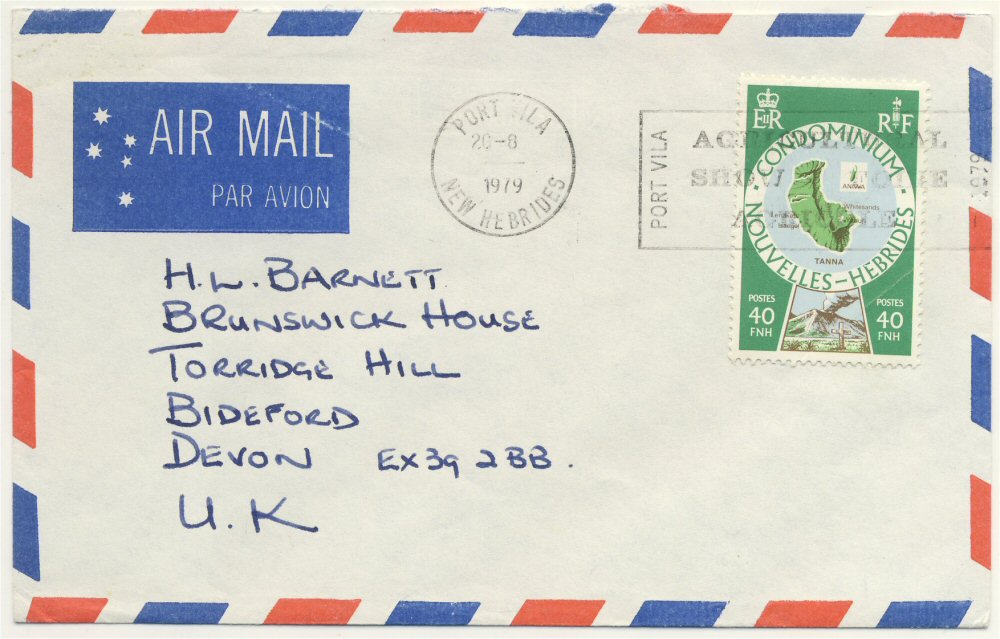 AIR MAIL
PAR AVION
PORT VILA
20-8
1979
NEW HEBRIDES
PORT VILA
SHOW
1979
EIIR
RF
CONDOMINIUM
NOUVELLES-HEBRIDES
ANIWA
Whitesands
TANNA
POSTES
40
FNH
POSTES
40
FNH
H.L. BARNETT
BRUNSWICK HOUSE
TORRIDGE HILL
BIDEFORD
DEVON EX39 2BB.
U.K